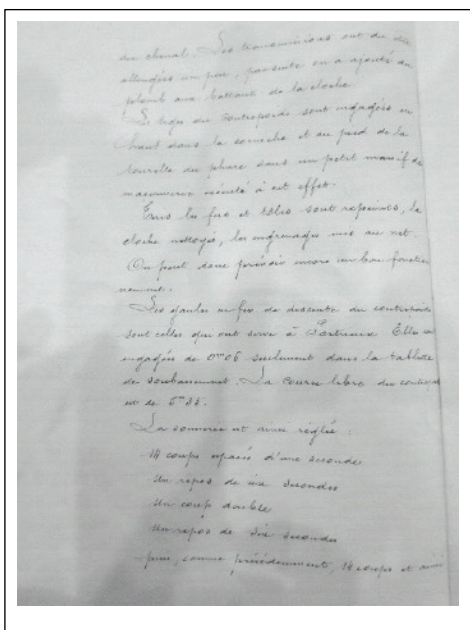 du cheval. Les transmissions ont du être
allongées un peu, par suite on a ajouté du
plomb aux battants de la cloche
Les tiges du contrepoids sont engagées en
haut dans la corniche et au pied de la
tourelle du phare dans un petit massif de
maçonnerie exécuté à cet effet.
Tous les fers et tôles sont repeints, la
cloche nettoyée, les engrenages mis au net.
On peut donc prévoir encore un bon fonction
nement.
Les gaules en fer de descente du contrepoids
sont celles qui ont servi à Elles
engagées de 0m06 seulement dans la tablette
de soubassement. La course libre du contrepoids
est de 5m33.
La sonnerie est ainsi réglée :
coups espacés d'une seconde
Un repos de six secondes
Un coup double
Un repos de six secondes
puis, comme précédemment, coups et ainsi